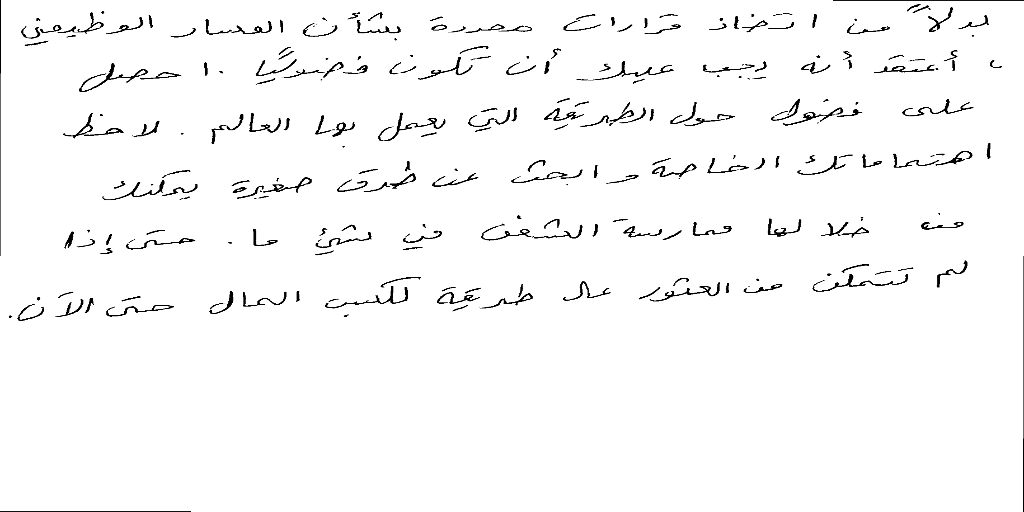 بدلاً من اتخاذ قرارات محددة بشأن المسار الوظيفي
، أعتقد أنه يجب عليك أن تكون فضوليًا . احصل
على فضول حول الطريقة التي يعمل بها العالم . لاحظ
اهتماماتك الخاصة وابحث عن طرق صغيرة يمكنك
من خلالها ممارسة الشغف في شيء ما . حتى إذا
لم تتمكن من العثور على طريقة لكسب المال حتى الآن.